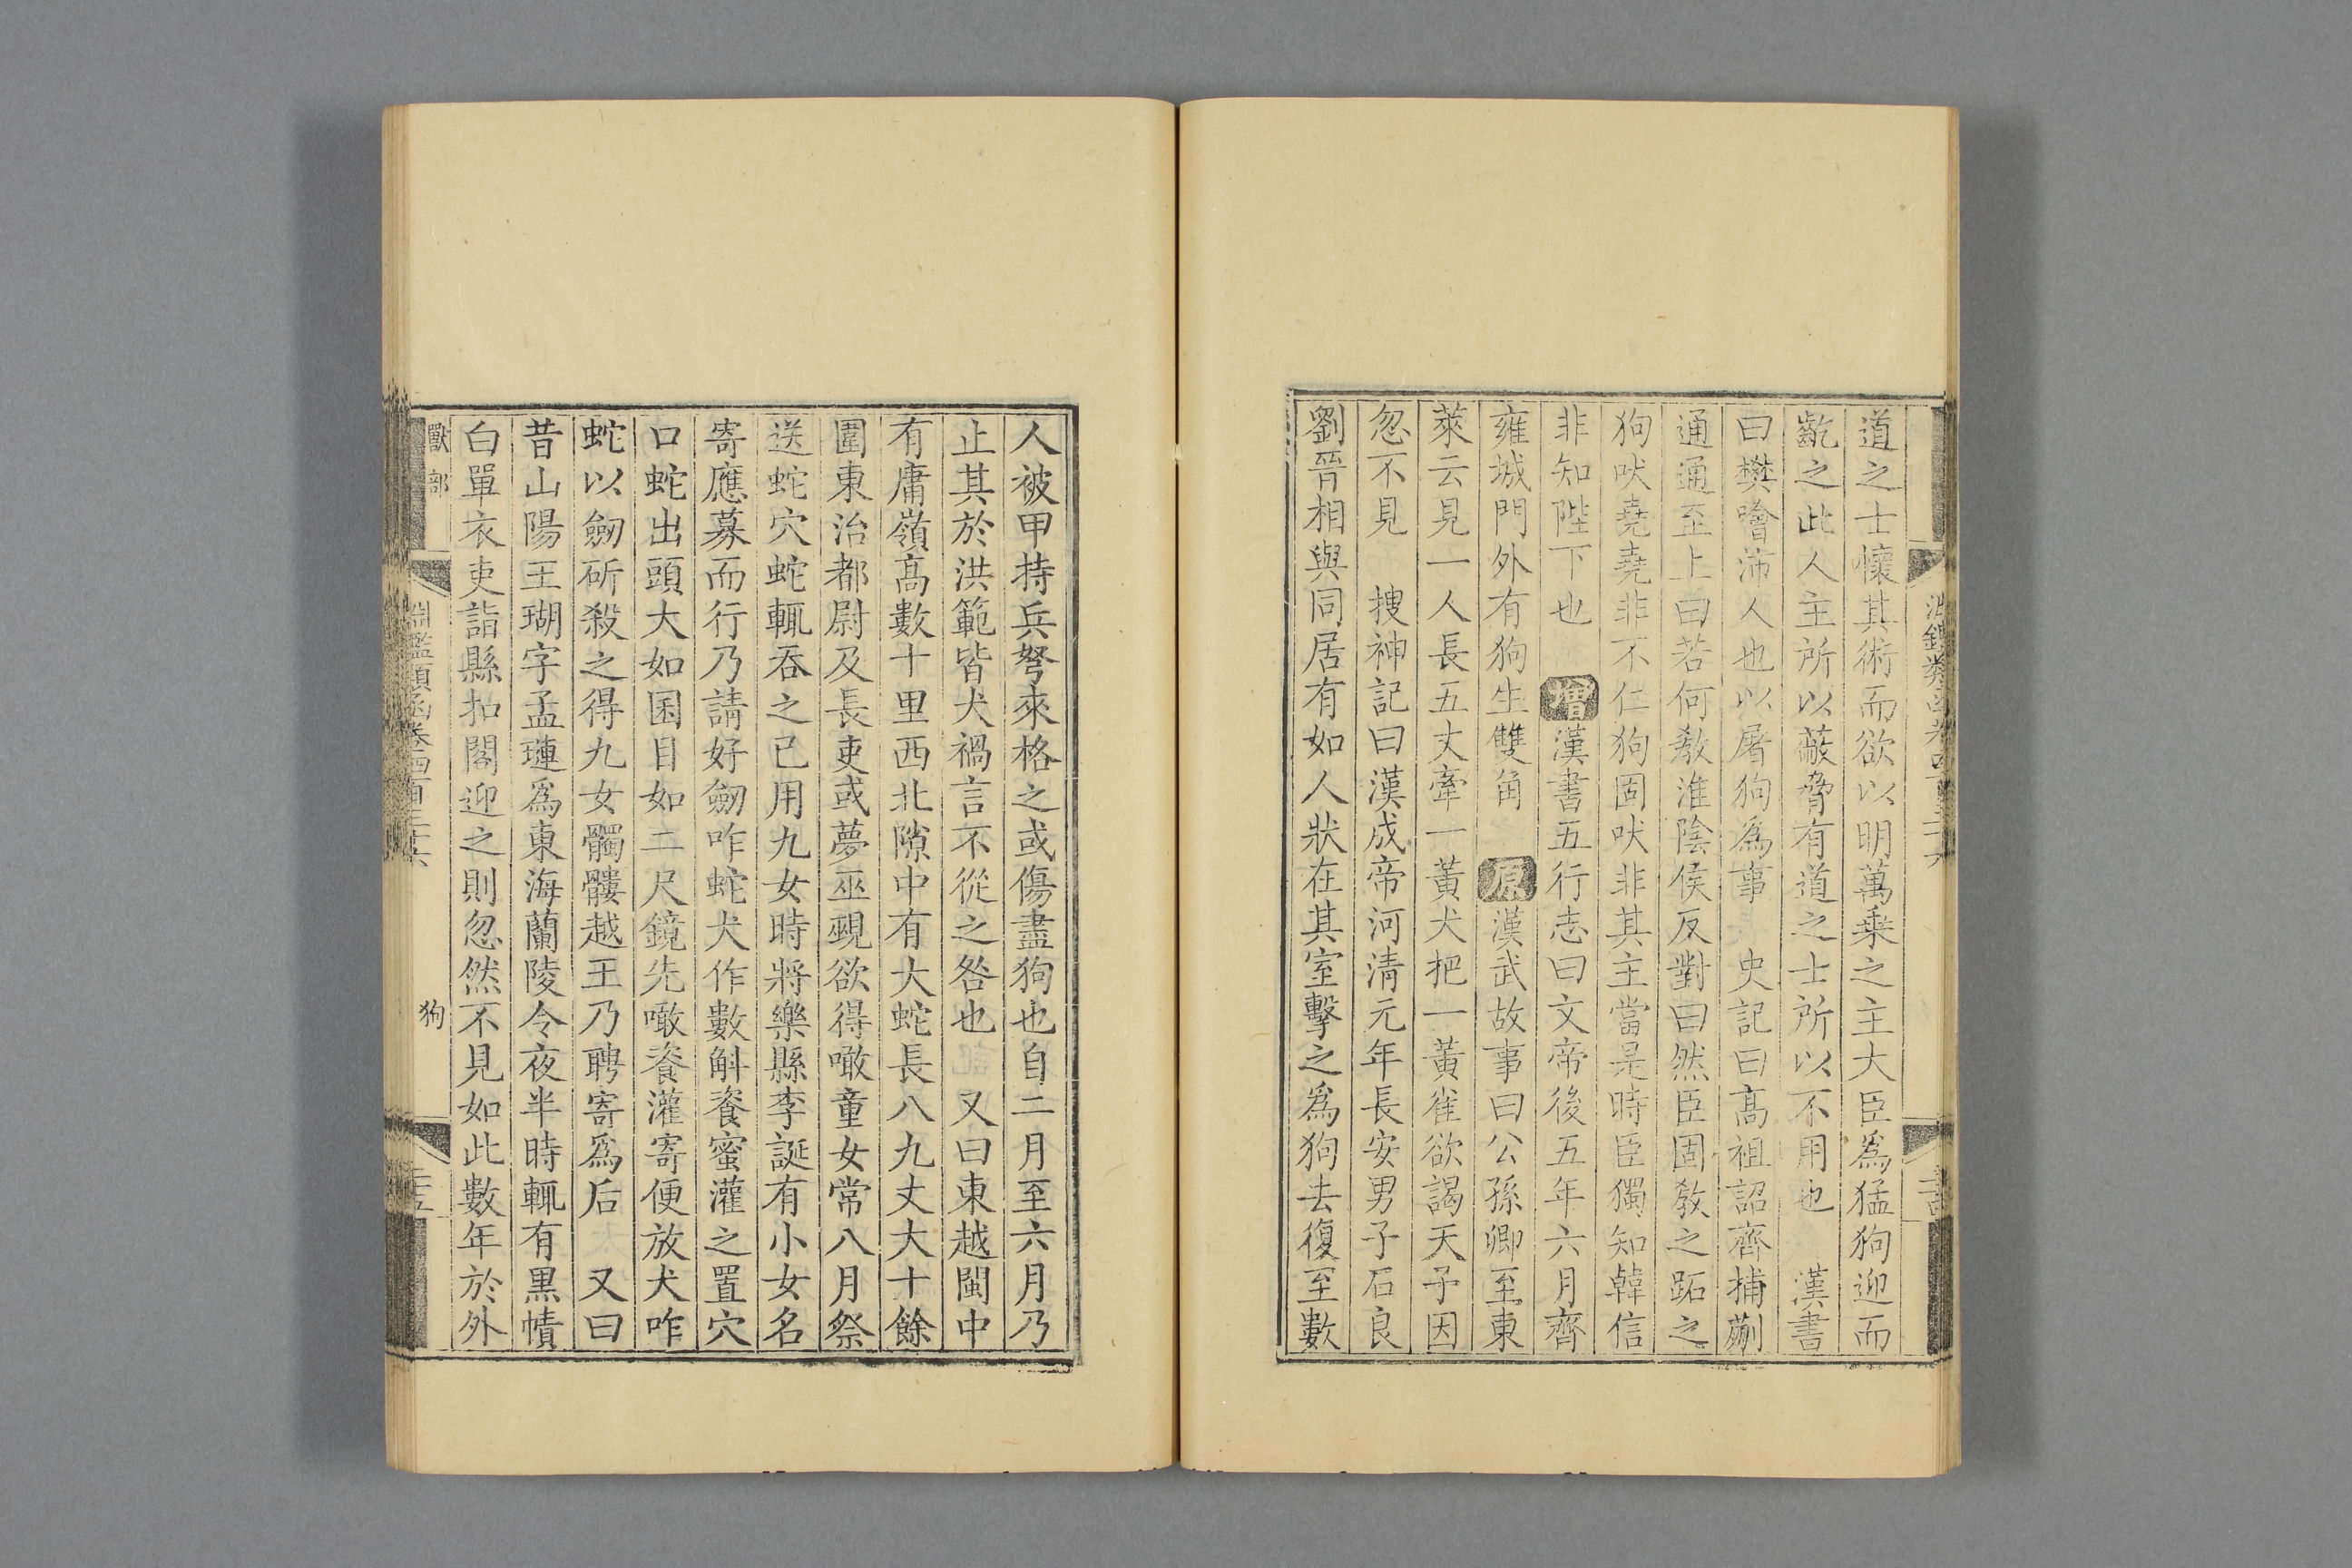 道之士懷其術而欲以明萬乗之主大臣為猛狗迎而
齕之此人主所以蔽脅有道之士所以不用也　漢書
曰樊噲沛人也以屠狗為事　史記曰髙祖詔齊捕蒯
通通至上曰若何教淮陰侯反對曰然臣固教之跖之
狗吠堯堯非不仁狗固吠非其主當是時臣獨知韓信
非知陛下也　增漢書五行志曰文帝後五年六月齊
雍城門外有狗生雙角　原漢武故事曰公孫卿至東
萊云見一人長五丈牽一黃犬把一黃雀欲謁天子因
忽不見　搜神記曰漢成帝河清元年長安男子石良
劉晉相與同居有如人狀在其室擊之為狗去復至數
人被甲持兵弩來格之或傷盡狗也自二月至六月乃
止其於洪範皆犬禍言不從之咎也　又曰東越閩中
有庸嶺髙數十里西北隙中有大蛇長八九丈大十餘
圍東治都尉及長吏或夢巫覡欲得噉童女常八月祭
送蛇穴蛇輒吞之已用九女時將樂縣李誕有小女名
寄應募而行乃請好劒咋蛇犬作數斛餈蜜灌之置穴
口蛇出頭大如囷目如二尺鏡先噉餈灌寄便放犬咋
蛇以劒斫殺之得九女髑髏越王乃聘寄為后　又曰
昔山陽王瑚字孟璉為東海蘭陵令夜半時輒有黒幘
白單衣吏詣縣扣閤迎之則忽然不見如此數年於外
獸部
淵鑑類函卷四百三十六
狗